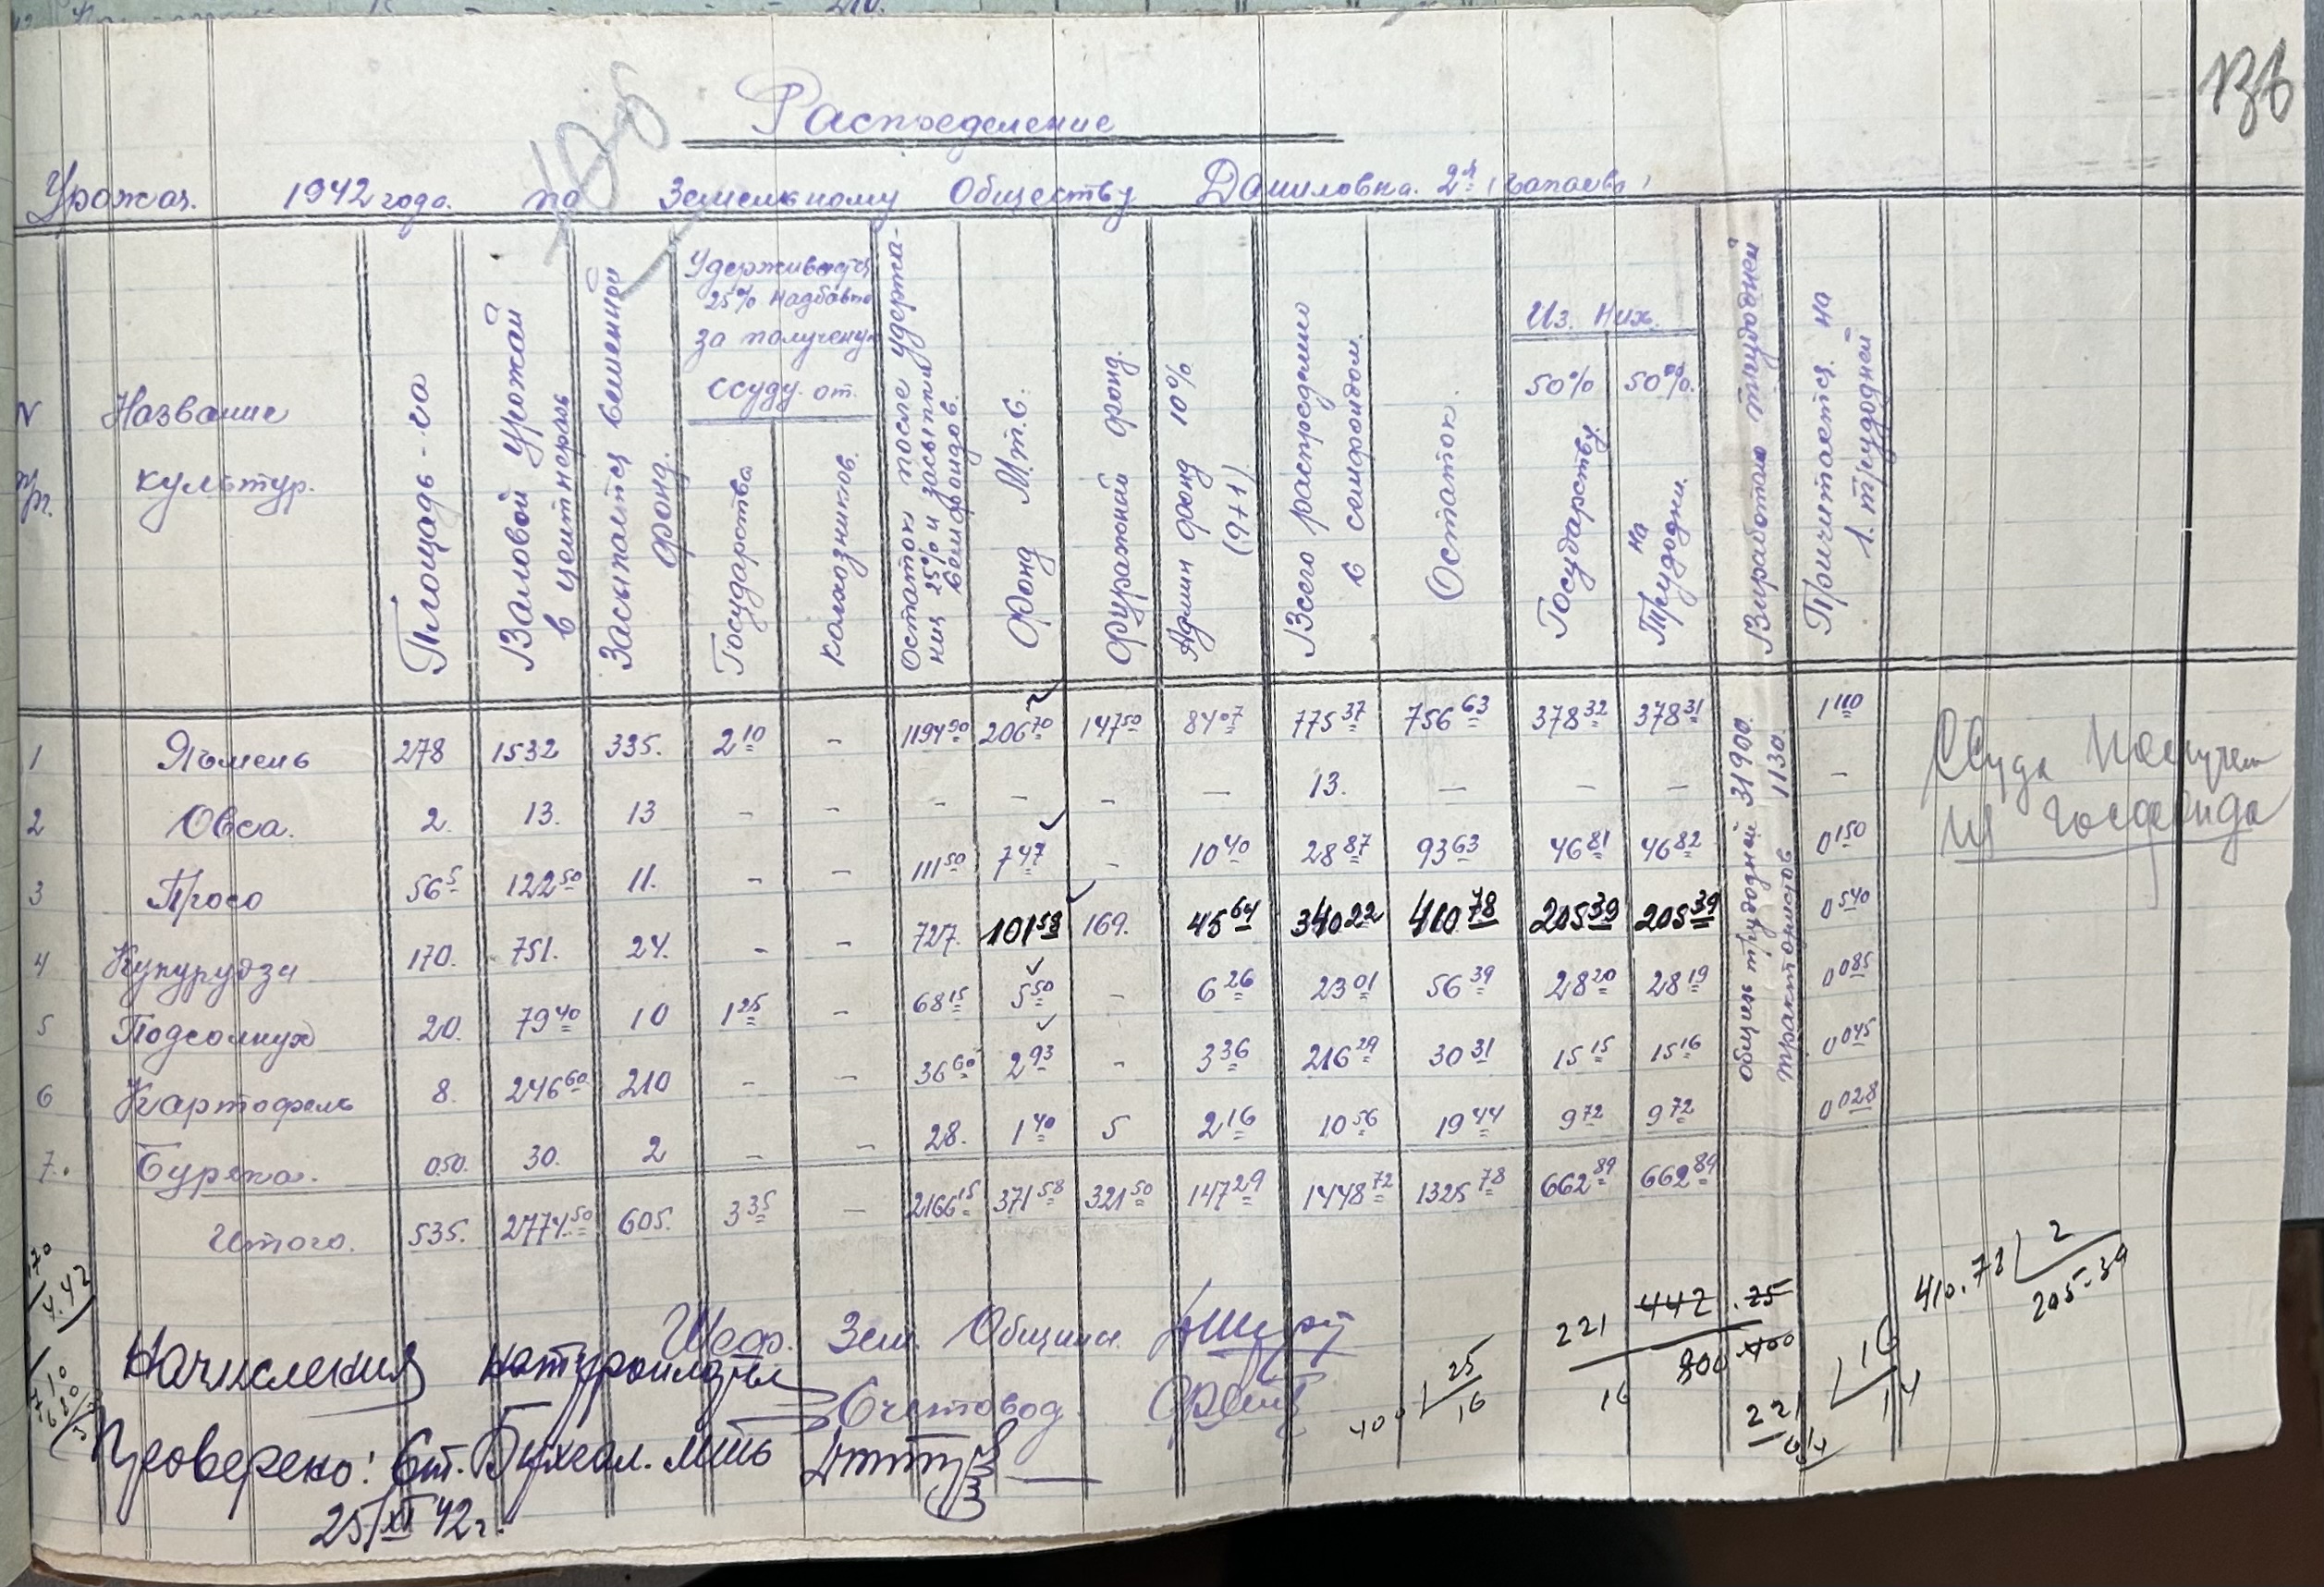 136
Распределение
Урожая 1942 года по Земельному Обществу Даниловка 2я (Чапаева)
N п/п. Название культур.
Площадь - га
Валовой Урожай в центнерах
Засыпается Семенной фонд.
Удерживается 25% надбавки за полученую ссуду от.
Государства
Колхозников.
Остаток после удержаниц 25% и засыпки семфондов.
Фонд М.т.с.
Фуражный фонд.
Админ фонд 10% (9+1)
Всего распределено с семфондом.
Остаток.
Из них.
50% Государству.
50%. на Трудодни.
Выработано трудодней
Причитается на 1. трудодней
1 Ячмень 278 1532 335. 2 10 - 1194 90 206 70 147 50 84 07 775 37 756 63 378 32 378 31 1 110
2 Овса. 2. 13. 13 - - - - - - 13. - - - -
3 Просо 56 5 122 50 11. - - 111 50 7 47 - 10 40 28 87 93 63 46 81 46 82 0 150
4 Кукурудза 170. 751. 24. - - 727. 101 58 169. 45 64 340 22 410 78 205 39 205 39 0 540
5 Подсолнух 20. 79 40 10 1 25 - 68 15 5 50 - 6 26 23 01 56 39 28 20 28 19 0 085
6 Картофель 8. 246 60 210 - - 36 60 2 93 - 3 36 216 29 30 31 15 15 15 16 0 045
7. Буряка. 0.50. 30. 2 - - 28. 1 40 5 2 16 10 56 19 44 9 72 9 72 0 028
Итого. 535. 2774.50 605. 3 35 - 2166 15 371 58 321 50 147 29 1448 72 1325 78 662 89 662 89
общих трудодней 31900.
трактористов 1130.
Ссуда получен
из госфонда
410.78 2
205-39
221 442 .25
16 800 400
400 25
16
221 16
64 14
170
4.42
Шеф. Зем. Общины
Начисления натуроплаты
Счетовод
Проверено: Ст. Бухгал. мтс
25/XI 42г.